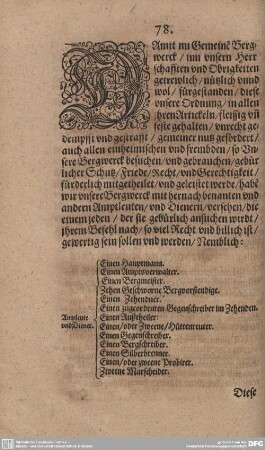 78.
DAmit im Gemeine Berg-
werck / inn vnsern Herr
schafften vnd Obrigkeiten
getrewlich / nützlich vnnd
wol / fürgestanden / diese
vnsere Ordnung / in allen
ihren Artickeln / fleissig vñ
feste gehalten / vnrecht ge-
dempfft vnd gestrafft / gemeiner nutz gefördert /
auch allen einheimischen vnd frembden / so Vn-
sere Bergwerck besuchen / vnd gebrauchen / gebür
licher Schutz / Friede / Recht / vnd Gerechtigkeit /
fürderlich mitgetheilet / vnd geleistet werde / habē
wir vnsere Bergwerck mit hernach benanten vnd
andern Amptleuten / vnd Dienern / versehen / die
einem jeden / der sie gebürlich ansuchen wirdt /
ihrem Befehl nach / so viel Recht vnd billich ist /
gewertig sein sollen vnd werden / Nemblich:
Einen Hauptmann.
Einen Amptsverwalter.
Einen Bergmeister.
Zehen Geschworne Bergverstendige.
Einen Zehendner.
Einen zugeordenten Gegenschreiber im Zehenden.
Amptleute
vnd Diener.
Einen Außtheiler:
Einen / oder Zweene / Hüttenreuter.
Einen Gegenschreiber.
Einen Bergschreiber.
Einen Silberbrenner.
Einen / oder zweene Probirer.
Zweene Marscheider.
Diese